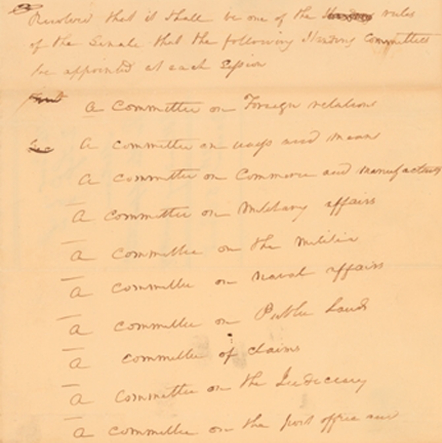 Resolved that it shall be one of the Standing rules
of the Senate that the following Standing Committees
be appointed at each Session
First
A Committee on Foreign relations
Sec
A committee on ways and means
A Committee on Commerce and manufactures
A Committee on Military affairs
A Committee on the Militia
A Committee on naval affairs
A Committee on Public Lands
A Committee of claims
A Committee on the Judiciary
A Committee on the post office and